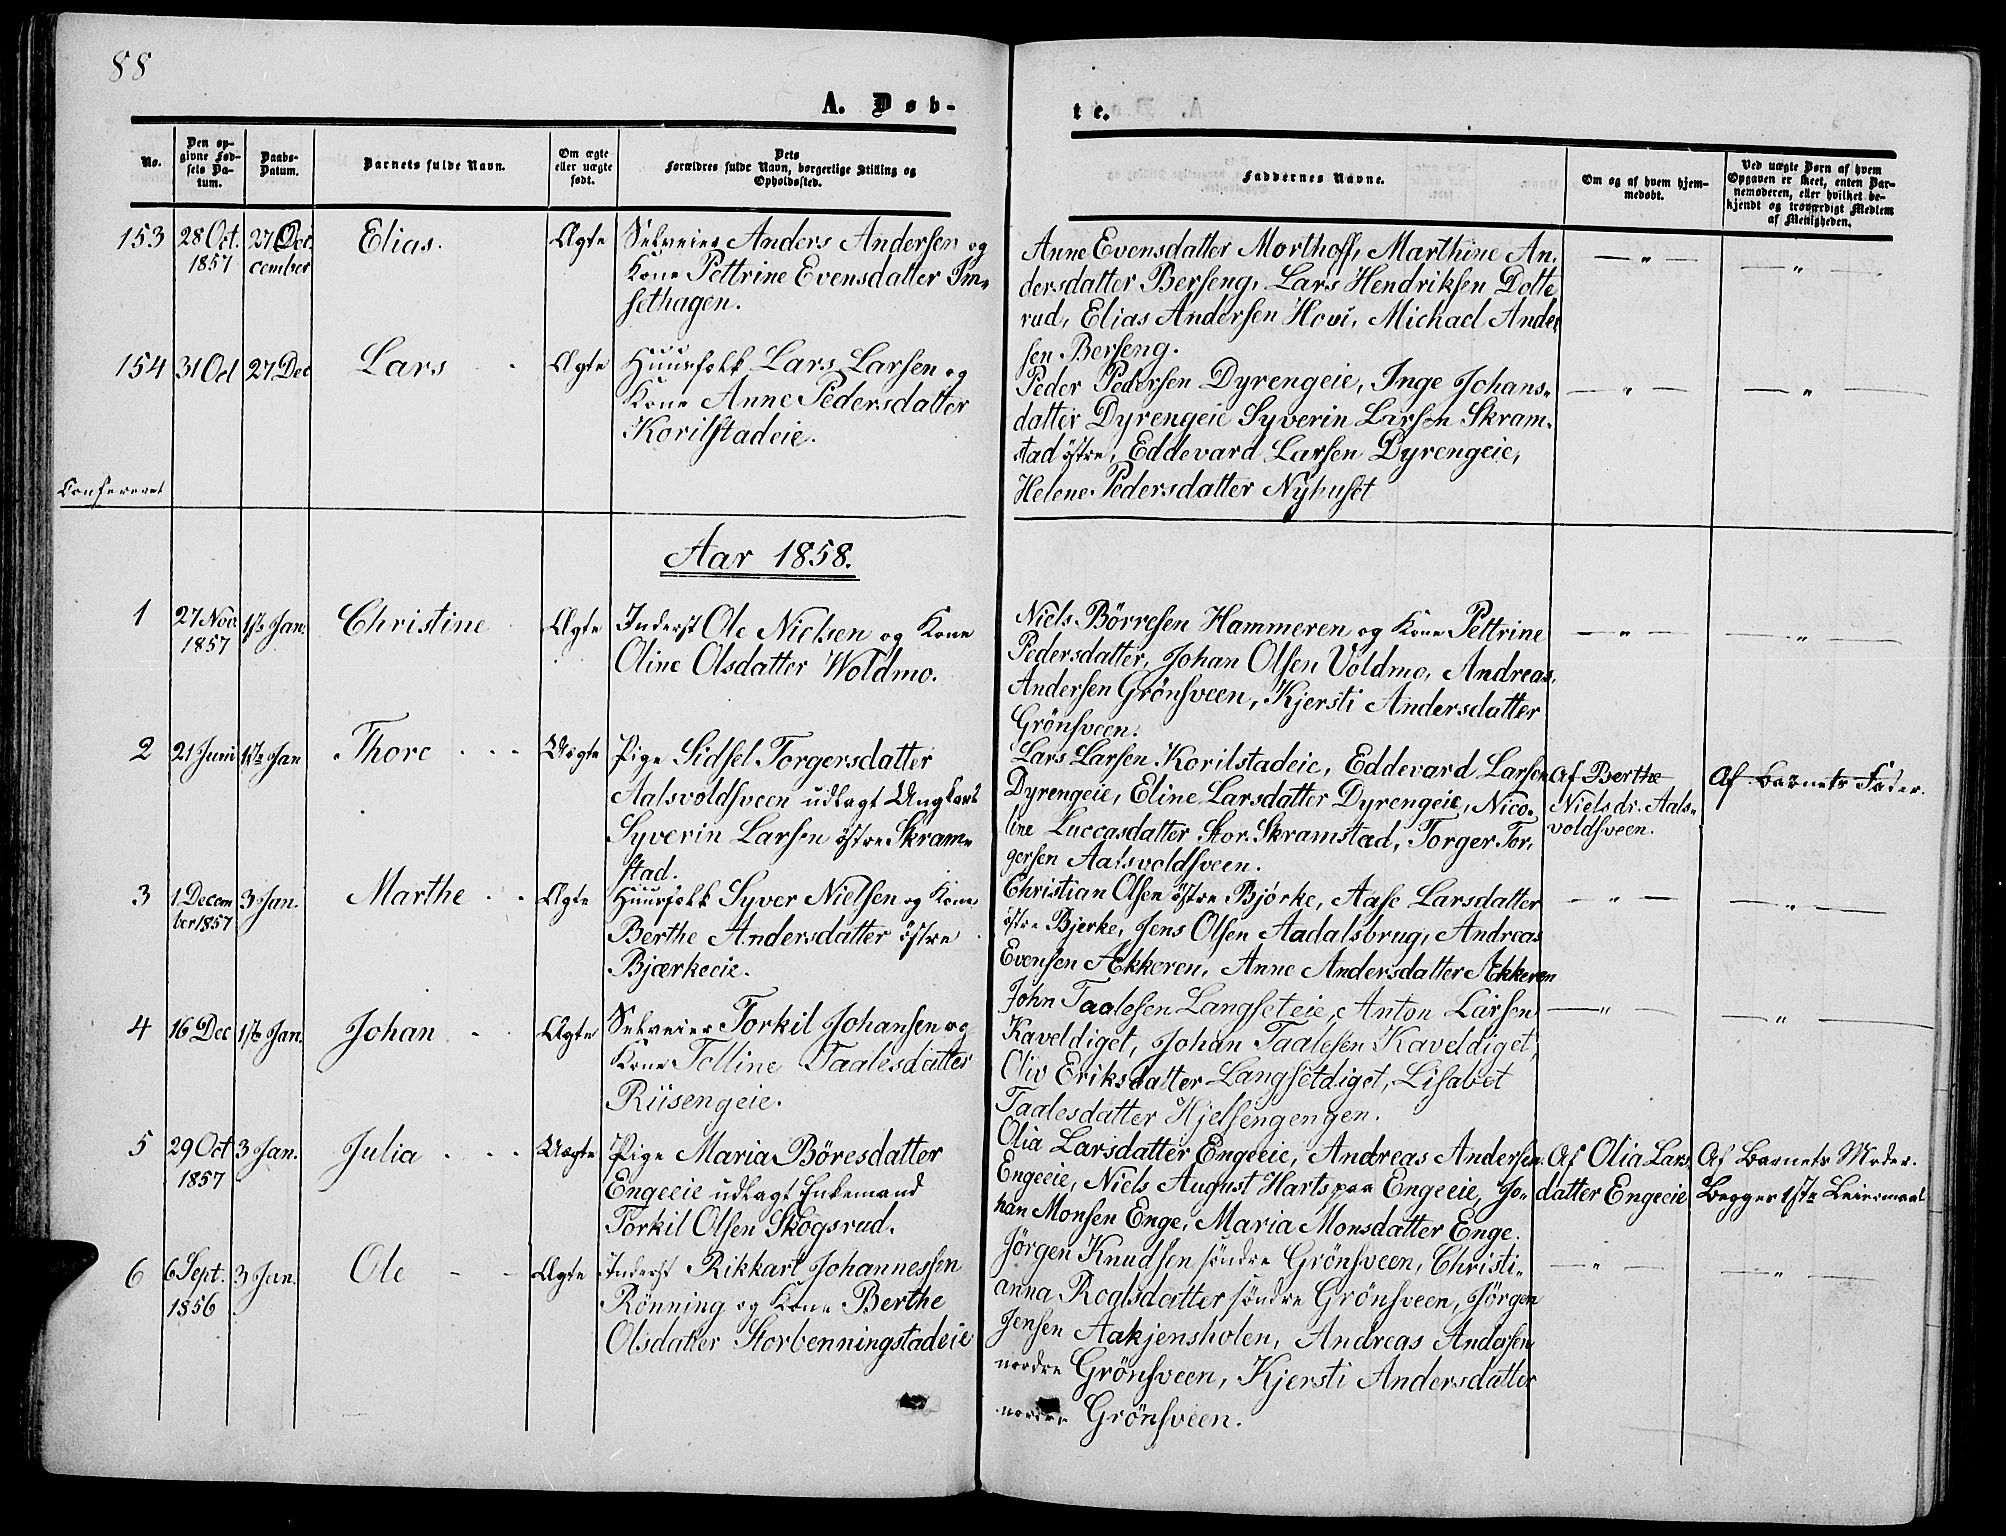 88
A. Døb-
te.
No.
Den op-
givne Fød-
sels Da-
tum.
Daabs-
Datum.
Barnets fulde Navn.
Om ægte
eller uægte
født.
Dets
Forældres fulde Navn, borgerlige Stilling og
Opholdssted.
Faddernes Navne.
Om og af hvem hjem-
medøbt.
Ved uægte Børn af hvem
Opgaven er skeet, enten Bar-
nemoderen, eller hvilket be-
kjendt og troværdigt Medlem
af Menigheden.
153
28 Oct.
1857
27 Dec
cember
Elias.
Ægte
Selveier Anders Andersen og
Kone Pettrine Evensdatter Im-
sethagen.
Anne Evensdatter Morthoff, Marthine An-
dersdatter Berseng, Lars Hendriksen Dotte
rud, Elias Andersen Hovi, Michael Ander
sen Berseng.
— " —
— " —
154
31 Oct
27 Dec
Lars
Ægte
Huusfolk Lars Larsen og
Kone Anne Pedersdatter
Korilstadeie.
Peder Pedersen Dyrengeie, Inge Johans-
datter Dyrengeie Syverin Larsen Skram-
stad östre, Eddevard Larsen Dyrengeie,
Helene Pedersdatter Nyhuset
— " —
— " —
Confereret
Aar 1858.
1
27 Nov.
1857
1ste Jan.
Christine
Ægte
Inderst Ole Nielsen og Kone
Oline Olsdatter Woldmo.
Niels Börresen Hammeren og Kone Pettrine
Pedersdatter, Johan Olsen Voldmo, Andreas
Andersen Grönsveen, Kjersti Andersdatter
Grönsveen.
— " —
— " —
2
21 Juni
1ste Jan
Thore
Uægte
Pige Sidsel Torgersdatter
Aalsvoldsveen udlagt Ungkarl
Syverin Larsen östre Skram-
stad.
Lars Larsen Korilstadeie, Eddevard Larsen
Dyrengeie, Eline Larsdatter Dyrengeie, Nico-
line Luccasdatter Stor Skramstad, Torger Tor-
gersen Aalsvoldsveen.
Af Berthe
Nielsdr. Aals-
voldsveen.
Af Barnets Fader.
3
1 Decem
ber 1857
3 Jan.
Marthe
Ægte
Huusfolk Syver Nielsen og Kone
Berthe Andersdatter östre
Bjærkeeie.
Christian Olsen östre Bjørke, Aase Larsdatter
östre Bjerke, Jens Olsen Aadalsbrug, Andreas
Evensen Ækkeren, Anne Andersdatter Ækkeren
— " —
— " —
4
16 Dec
1ste Jan.
Johan
Ægte
Selveier Torkil Johansen og
Kone Tolline Taalesdatter
Riisengeie.
John Taalesen Langseteie, Anton Larsen
Kaveldiget, Johan Taalesen Kaveldiget,
Oliv Eriksdatter Langsetdiget, Lisabet
Taalesdatter Hjelsengengen.
— " —
— " —
5
29 Oct
1857
3 Jan.
Julia
Uægte
Pige Maria Böresdatter
Engeeie udlagt Enkemand
Torkil Olsen Skogsrud.
Olia Larsdatter Engeeie, Andreas Andersen
Engeeie, Niels August Harts paa Engeeie, Jo-
han Monsen Enge, Maria Monsdatter Enge.
Af Olia Lars
datter Engeeie
Af Barnets Moder.
Begges 1ste Leiermaal
6
6 Sept.
1856
3 Jan.
Ole
Ægte
Inderst Rikkart Johannessen
Rönning og Kone Berthe
Olsdatter Storbenningstadeie
Jörgen Knudsen söndre Grönsveen, Christi-
anna Roalsdatter söndre Grönsveen, Jörgen
Jensen Aakjensholen, Andreas Andersen
nordre Grönsveen, Kjersti Andersdatter
nordre Grönsveen.
— " —
— " —